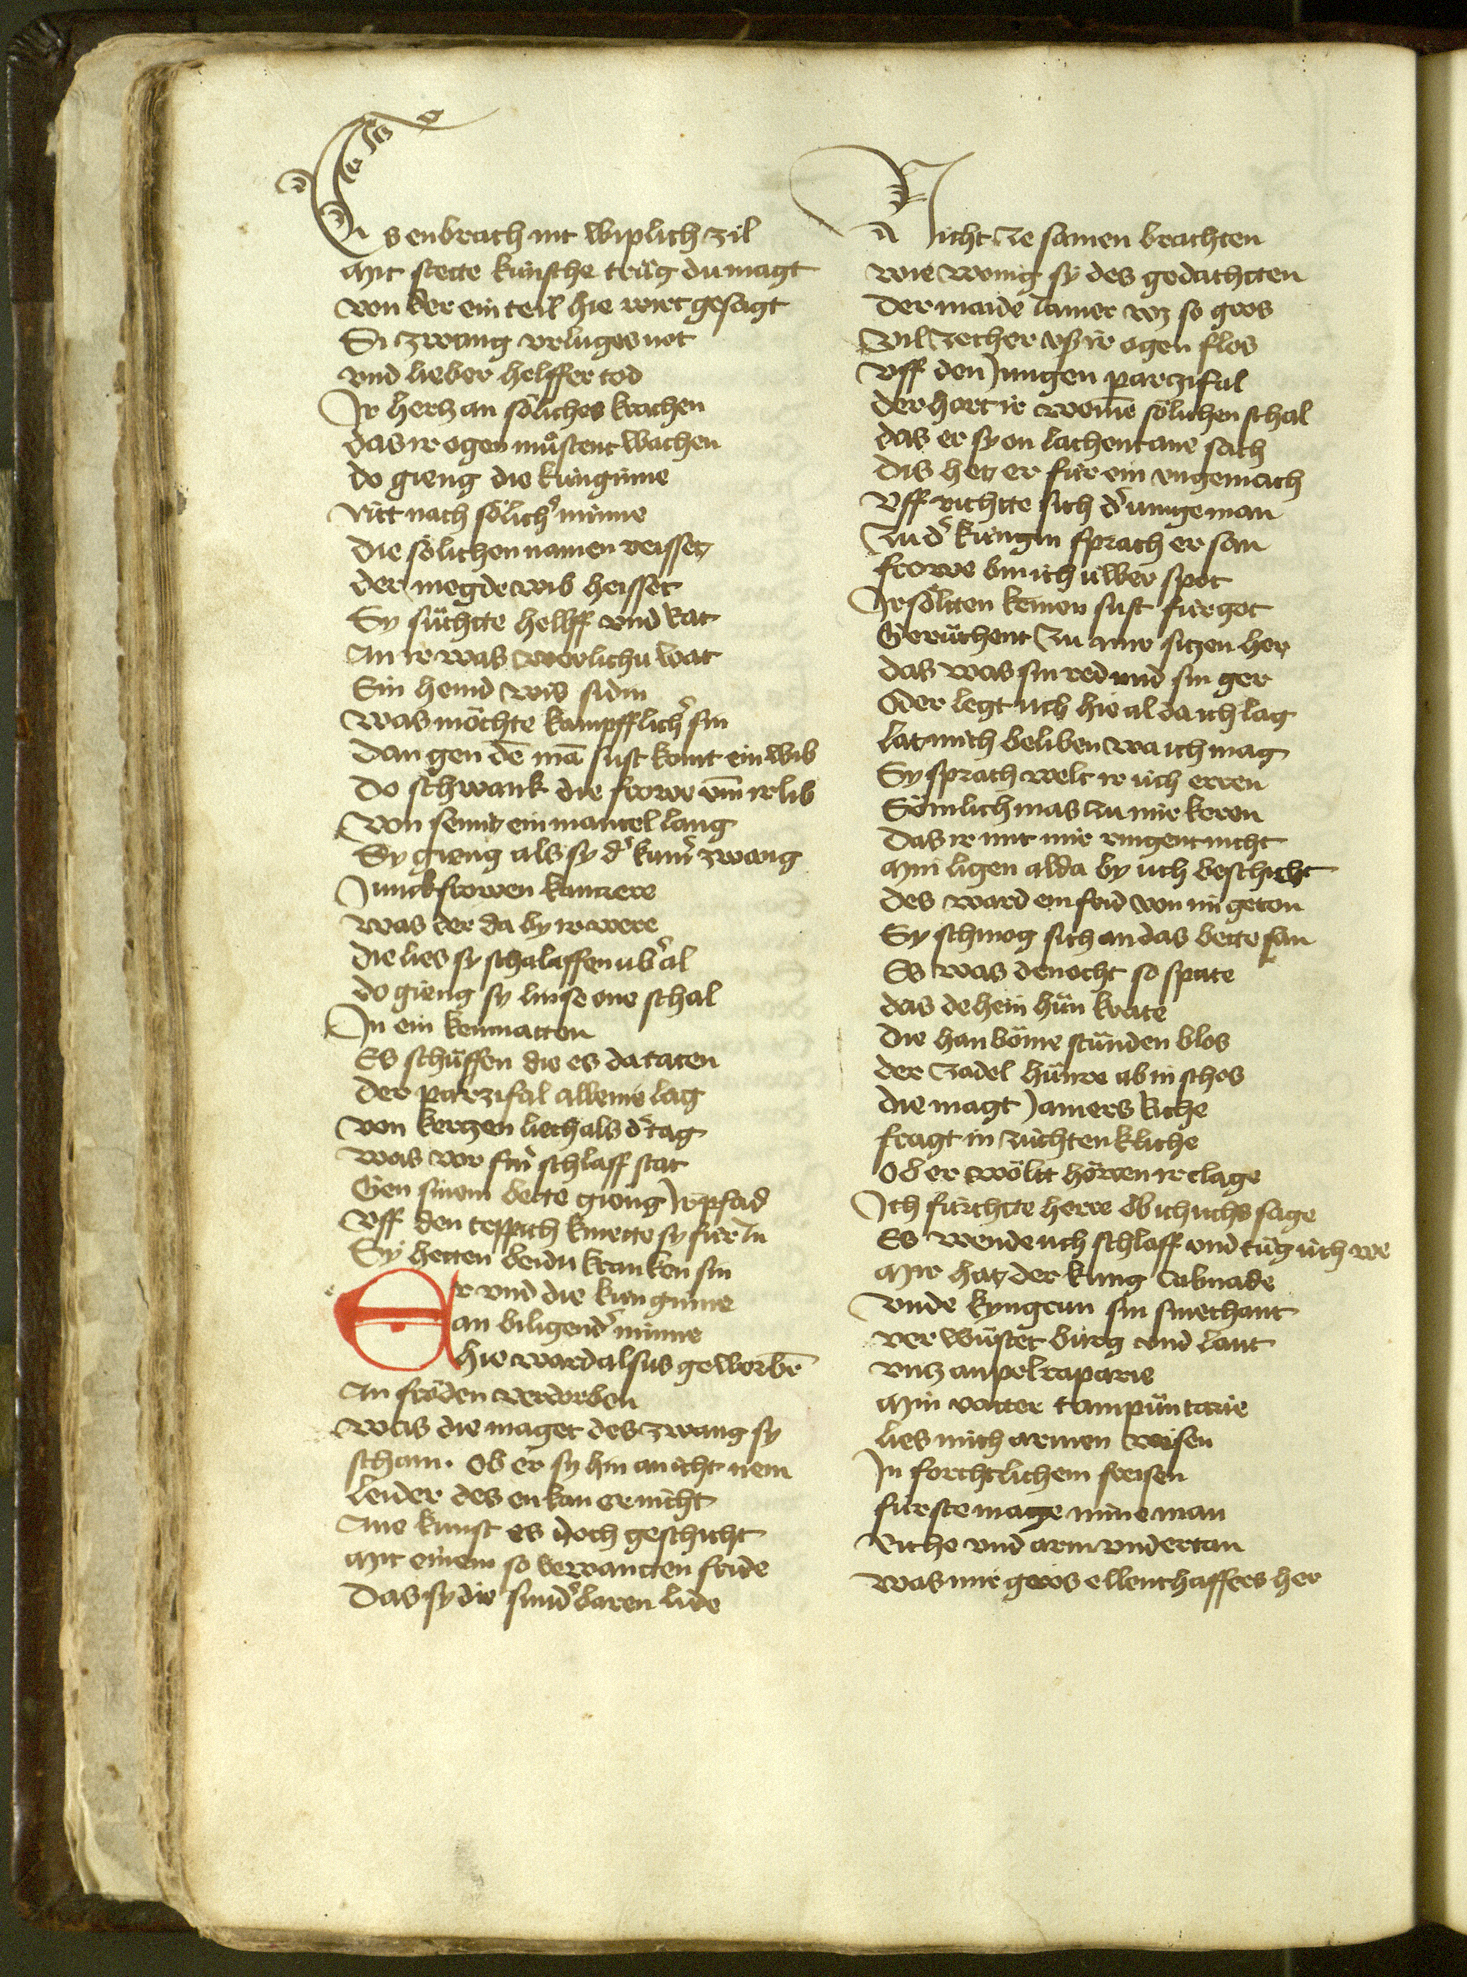 Es enbrach nit wiplich zil
Mit stette künsche trüg du magt
von der ein teil hie wirt gesagt
Si zwang vrluges not
vnd lieber helffer tod
Ir hertz an söliches krachen
das ir ogen müstent wachen
do gieng die künginne
Nitt nach sölicher minne
die sölichen namen reisset
der megde wib heisset
Sy süchtte helff vnd rat
An ir was werlichu wat
Ein hemd wis sidin
was möchte kampfflicher sin
dan gen dē mā sust komt ein wib
Do schwank die frowe vm̄ ir lib
Von semit ein mantel lang
Sy gieng als sy der kumer zwang
Junckfrowen kamrere
was der da by ir were
die lies sy schalaffen uber al
do gieng sy linse one schal
In ein kemnatten
Es schüffen die es da taten
der parzifal alleine lag
von kertzen liecht als der tag
was vor siner schlaff stat
Gen sinem bette gieng Ir pfad
Vff den teppich knnette sy für in
Sy hetten beidu kranken sin
Er vnd die kunginne
an biligender minne
hie ward alsus geworbē
An fröden verdorben
was die maget des zwang sy
scham. Ob er sy hin an icht nem
leider des en kan er nicht
Ane kunst es doch geschicht
Mit einem so bewantten fride
Das sy die sunderbaren lide
Nicht ze samen brachten
wie wenig sy des gedachtten
der maide iamer wz so gros
vil zecher vß ir ogen flos
vff den Jungen parzifal
der hort ir weinē sölichen schal
das er sy on lachent ane sach
dis het er für ein vngemach
Vff richtte sich der iunge man
Zu der küngin sprach er san
frowe bin ich üwer spot
Ir söltten keinen sust für got
Gerüchent zu mir sitzen her
das was sin red und sin ger
Oder legt üch hie al da ich lag
lat mich beliben wa ich mag
Sy sprach welt ir üch erren
Sömlich mas zu mir keren
Das ir mit mir ringent nicht
Min ligen alda by üch beschicht
des ward ein frid von im geton
Sy schmog sich an das bette san
Es was denocht so spate
das dehein hün krate
die han böme stünden blos
der zadel hünre ab in schos
die magt Jamers riche
fragt in züchtenkliche
ob er wöltt hören ir clage
Ich fürchtte herre ob ich uchs sage
Es wende uch schlaff vnd tüg üch we
Mir hat der küng clamide
vnde kyngrun sin sinechant
verwüstet bürg vnd lant
vntz an pelraparie
Min vatter tampüntarie
lies mich armen weisen
In forchtlichem freisen
fürste mage mine man
Riche vnd arm vndertan
was mir gros ellenthafftes her